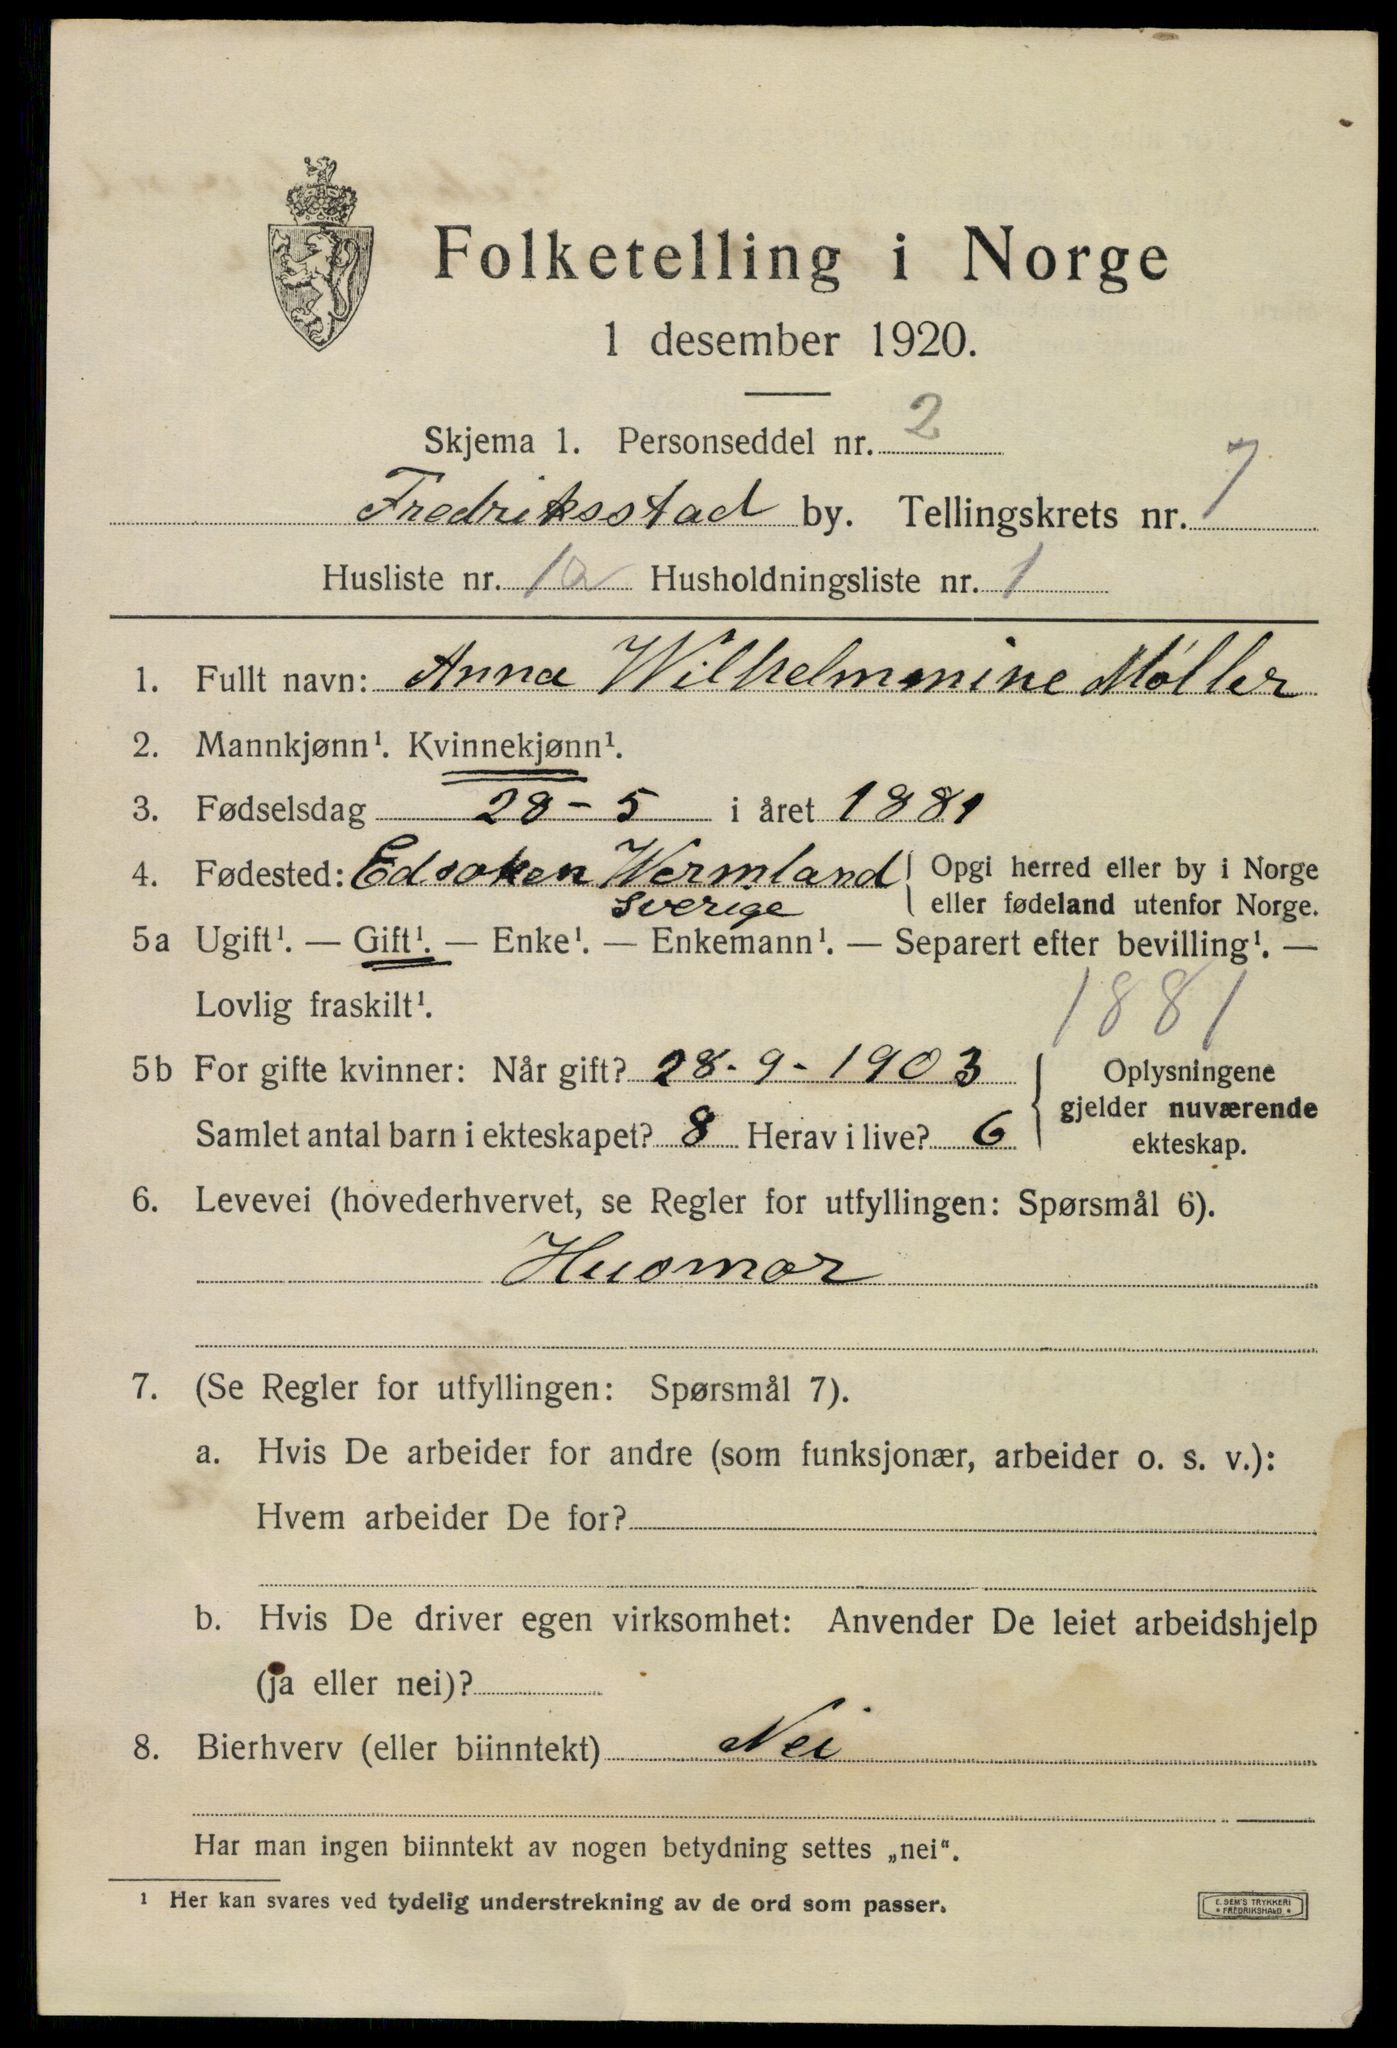 Folketelling i Norge
1 desember 1920.
Skjema 1. Personseddel nr. 2
Fredriksstad by. Tellingskrets nr. 7
Husliste nr. 1a Husholdningsliste nr. 1
1. Fullt navn: Anna Wilhelmmine Møller
2. Mannkjønn¹. Kvinnekjønn¹.
3. Fødselsdag 28-5 i året 1881
4. Fødested: Edsoken Wermland Opgi herred eller by i Norge
Sverige eller fødeland utenfor Norge.
5a Ugift¹. — Gift¹. — Enke¹. — Enkemann¹. — Separert efter bevilling¹. —
Lovlig fraskilt¹. 1881
5b For gifte kvinner: Når gift? 28-9-1903 Oplysningene
gjelder nuværende
Samlet antal barn i ekteskapet? 8 Herav i live? 6 ekteskap.
6. Levevei (hovederhvervet, se Regler for utfyllingen: Spørsmål 6).
Husmor
7. (Se Regler for utfyllingen: Spørsmål 7).
a. Hvis De arbeider for andre (som funksjonær, arbeider o. s. v.):
Hvem arbeider De for?
b. Hvis De driver egen virksomhet: Anvender De leiet arbeidshjelp
(ja eller nei)?
8. Bierhverv (eller biinntekt) Nei
Har man ingen biinntekt av nogen betydning settes „nei“.
¹ Her kan svares ved tydelig understrekning av de ord som passer.
E. SEM'S TRYKKERI
* FREDRIKSHALD *